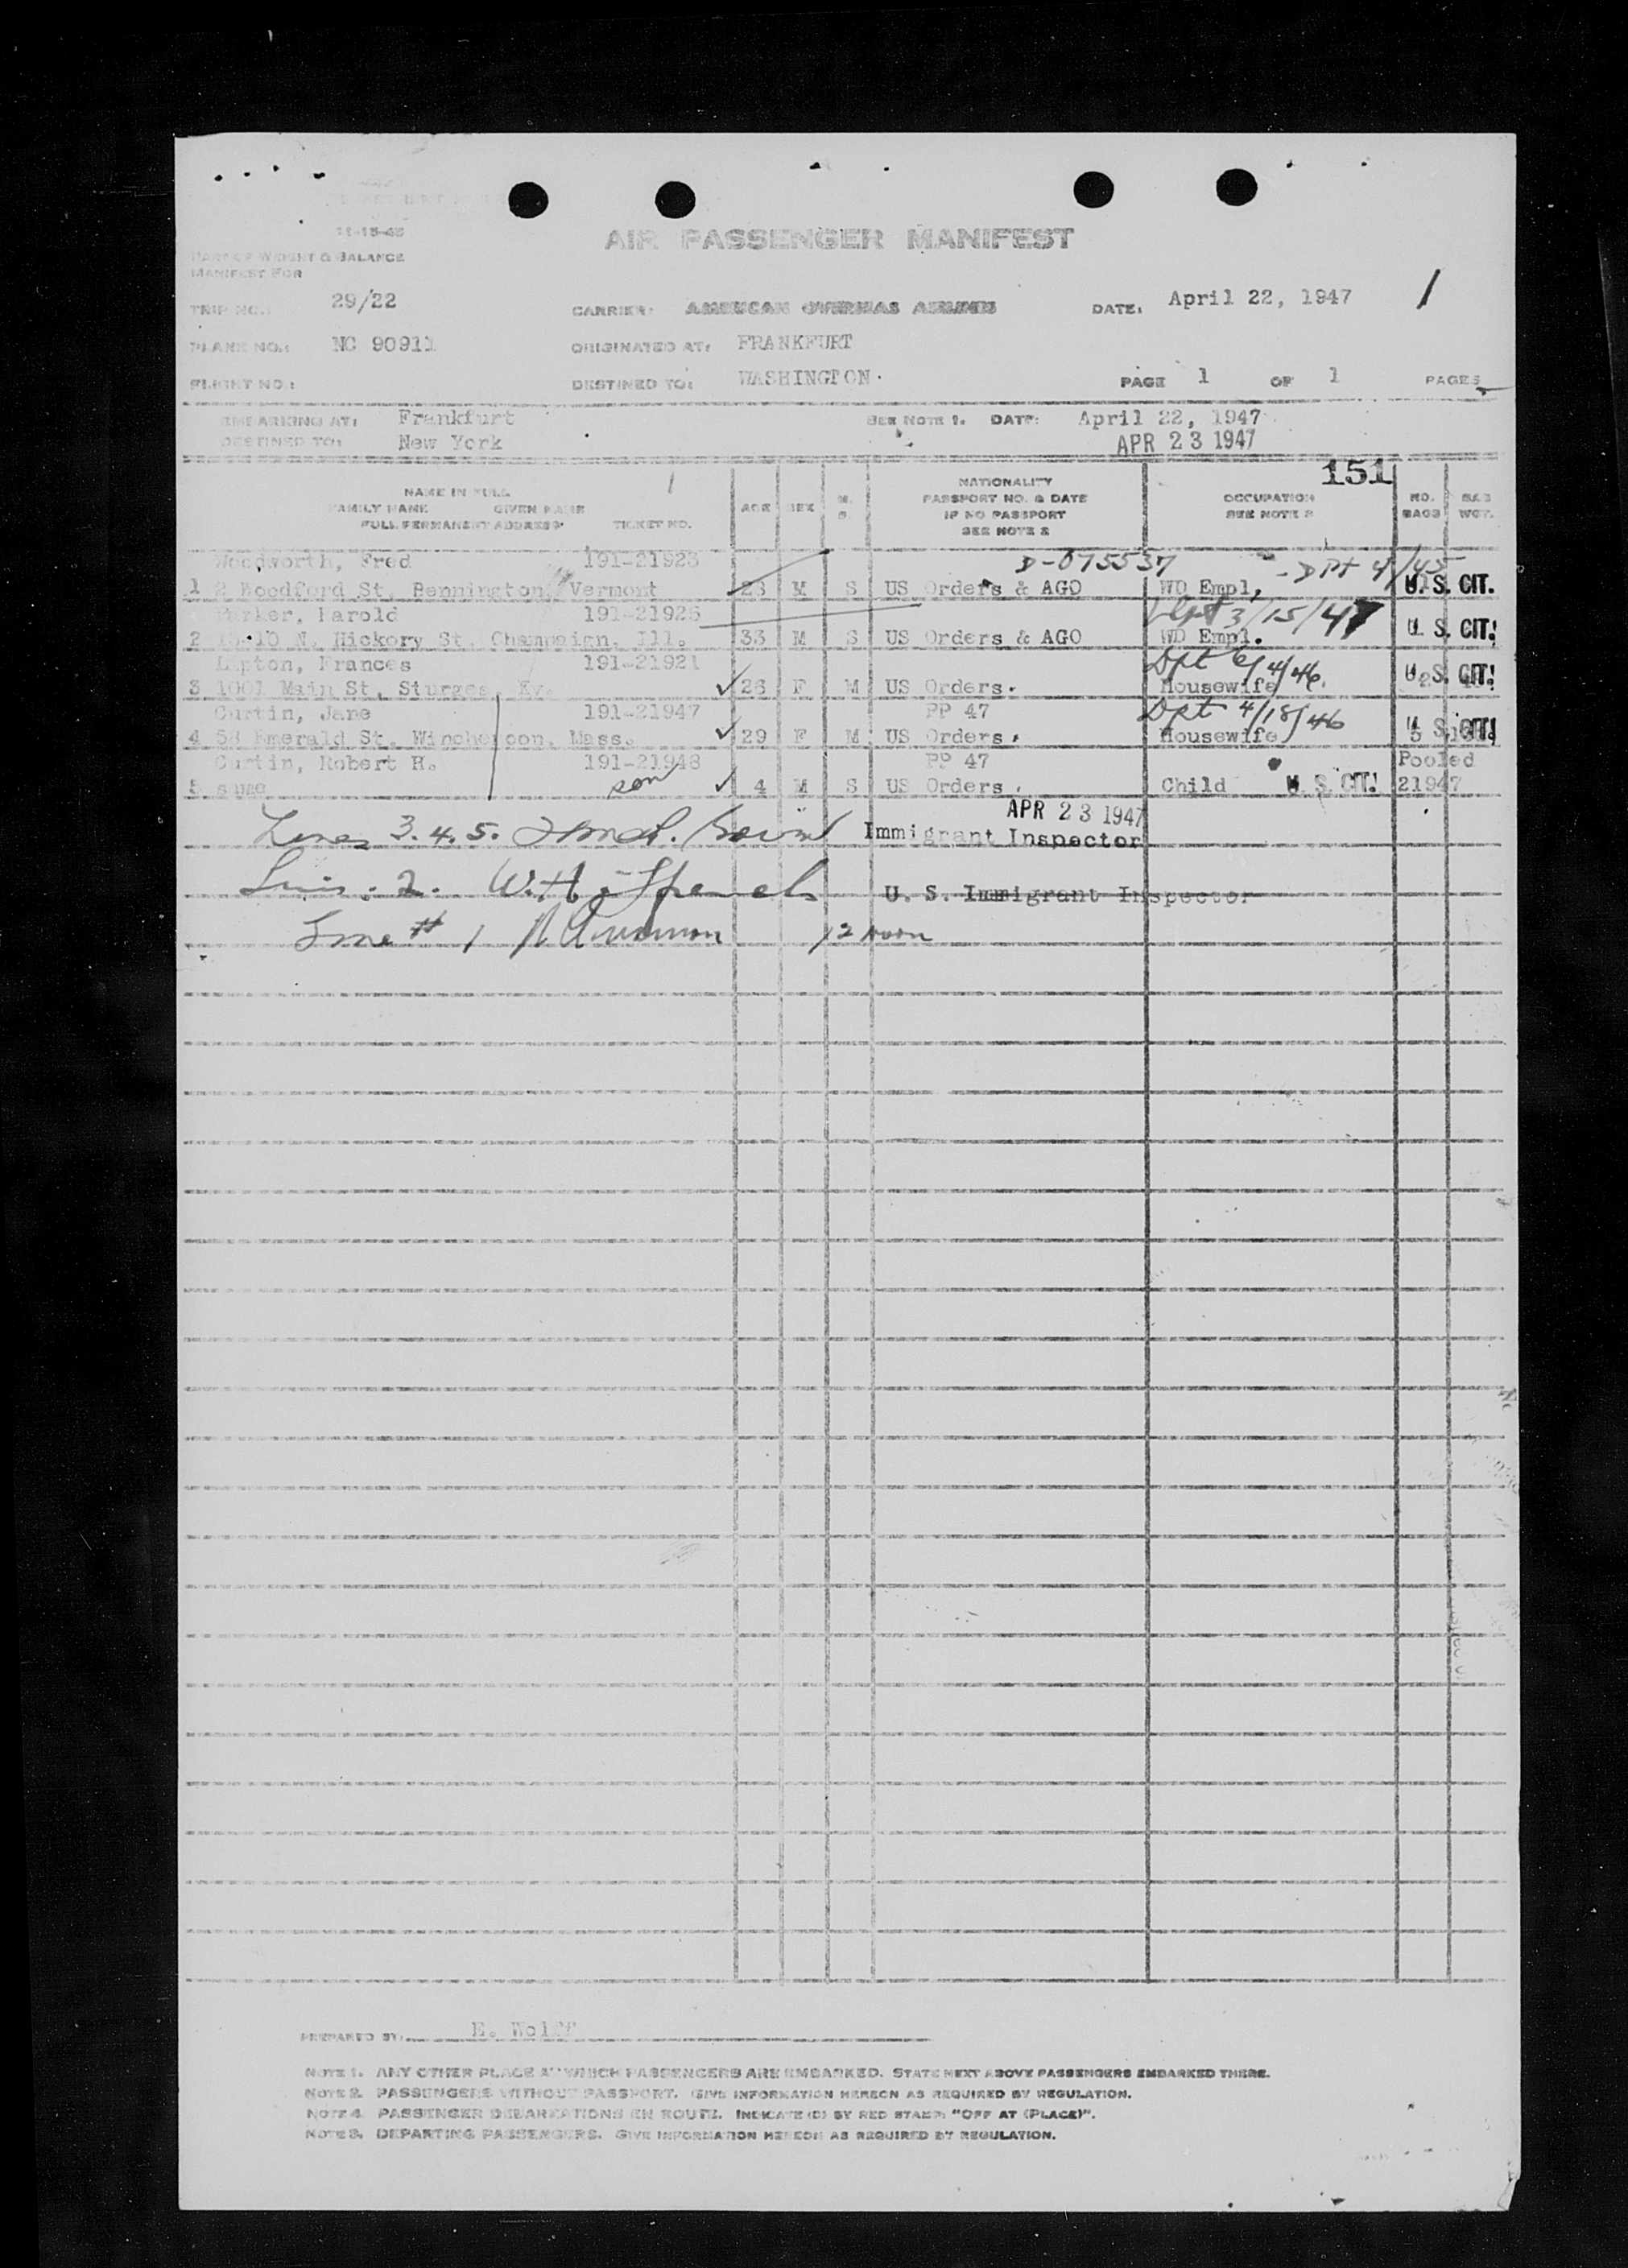 11-15-45
AIR PASSENGER MANIFEST
PART OF WEIGHT & BALANCE
MANIFEST FOR
TRIP NO.: 29/22 CARRIER: AMERICAN OVERSEAS AIRLINES DATE: April 22, 1947 1
PLANE NO.: NC 90911 ORIGINATED AT: FRANKFURT
FLIGHT NO.: DESTINED TO: WASHINGTON. PAGE 1 OF 1 PAGES
EMBARKING AT: Frankfurt SEE NOTE 1. DATE: April 22, 1947
DESTINED TO: New York APR 23 1947
151
NAME IN FULL
FAMILY NAME GIVEN NAME
FULL PERMANENT ADDRESS TICKET NO.
AGE SEX M. S.
NATIONALITY
PASSPORT NO. & DATE
IF NO PASSPORT
SEE NOTE 2
OCCUPATION
SEE NOTE 2
NO. BAGS BAG WGT.
Woodworth, Fred 191-21923 D-075537 - DPt 4/45
1 2 Woodford St. Bennington, Vermont 23 M S US Orders & AGO WD Empl, U.S. CIT.
Parker, Harold 191-21925 Dept 3/15/47
2 N. Hickory St. Champaign. Ill. 33 M S US Orders & AGO WD Empl. U.S. CIT.
Lupton, Frances 191-21921 Dpt 6/4/46
3 1001 Main St, Sturges, Ky. 26 F M US Orders. Housewife U.S. CIT.
Curtin, Jane 191-21947 PP 47 Dpt 4/18/46
4 58 Emerald St. Winchendon, Mass. 29 F M US Orders. Housewife U.S. CIT.
Curtin, Robert H. 191-21948 PP 47 Pooled
5 same son 4 M S US Orders. Child U.S. CIT. 21947
APR 23 1947
Lines 3.4.5. Immigrant Inspector
2. W.H. U. S. Immigrant Inspector
Line # 1 12 noon
PREPARED BY: E. Wolff
NOTE 1. ANY OTHER PLACE AT WHICH PASSENGERS ARE EMBARKED. STATE NEXT ABOVE PASSENGERS EMBARKED THERE.
NOTE 2. PASSENGERS WITHOUT PASSPORT. GIVE INFORMATION HEREON AS REQUIRED BY REGULATION.
NOTE 4. PASSENGER DEBARKATIONS EN ROUTE. INDICATE (D) BY RED STAMP: "OFF AT (PLACE)".
NOTE 3. DEPARTING PASSENGERS. GIVE INFORMATION HEREON AS REQUIRED BY REGULATION.